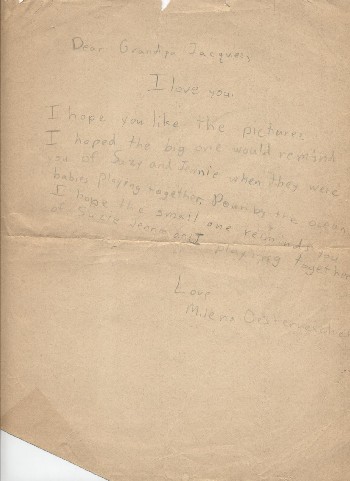 Dear Grandpa Jacques,
I love you.
I hope you like the pictures
I hoped the big one would remind
you of Suzy and Jennie when they were
babies playing together, by the ocean
I hope the small one reminds you
of and I playing together
Love